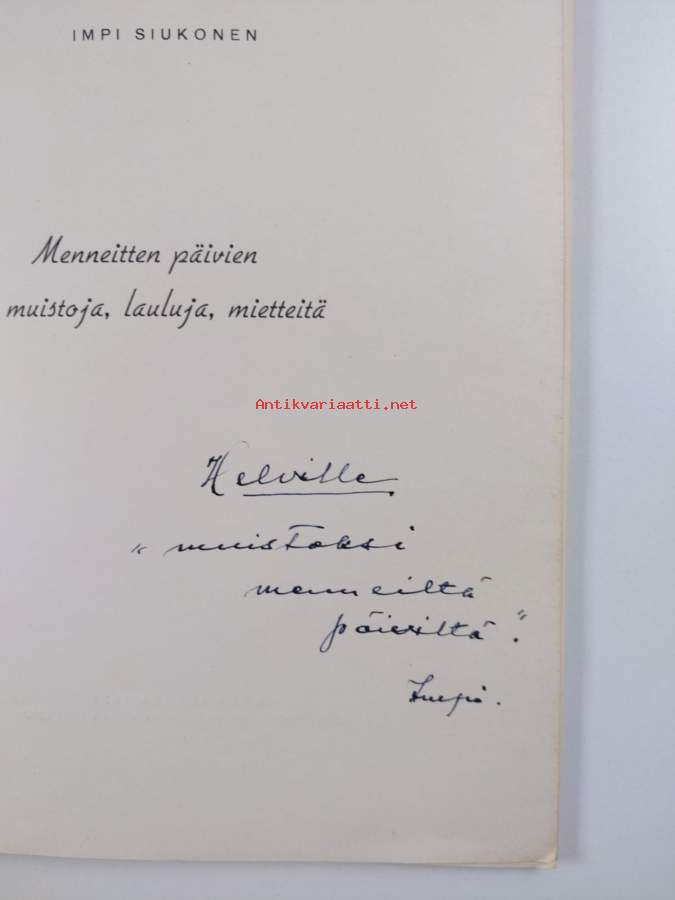 IMPI SIUKONEN
Menneitten päivien
muistoja, lauluja, mietteitä
Antikvariaatti.net
Helville
"muistoksi
menneiltä
päiviltä".
Impi.